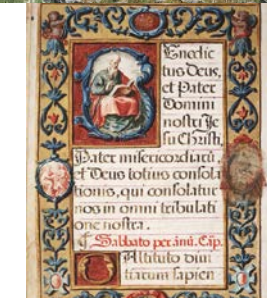 Benedic
tus Deus,
et Pater
Domini
nostri Je
su Christi,
Pater misericordiarū,
et Deus totius consola
tionis, qui consolatur
nos in omni tribulati
one nostra.
Sabbato per ānū. Cap.
O Altitudo divi
tiarum sapien